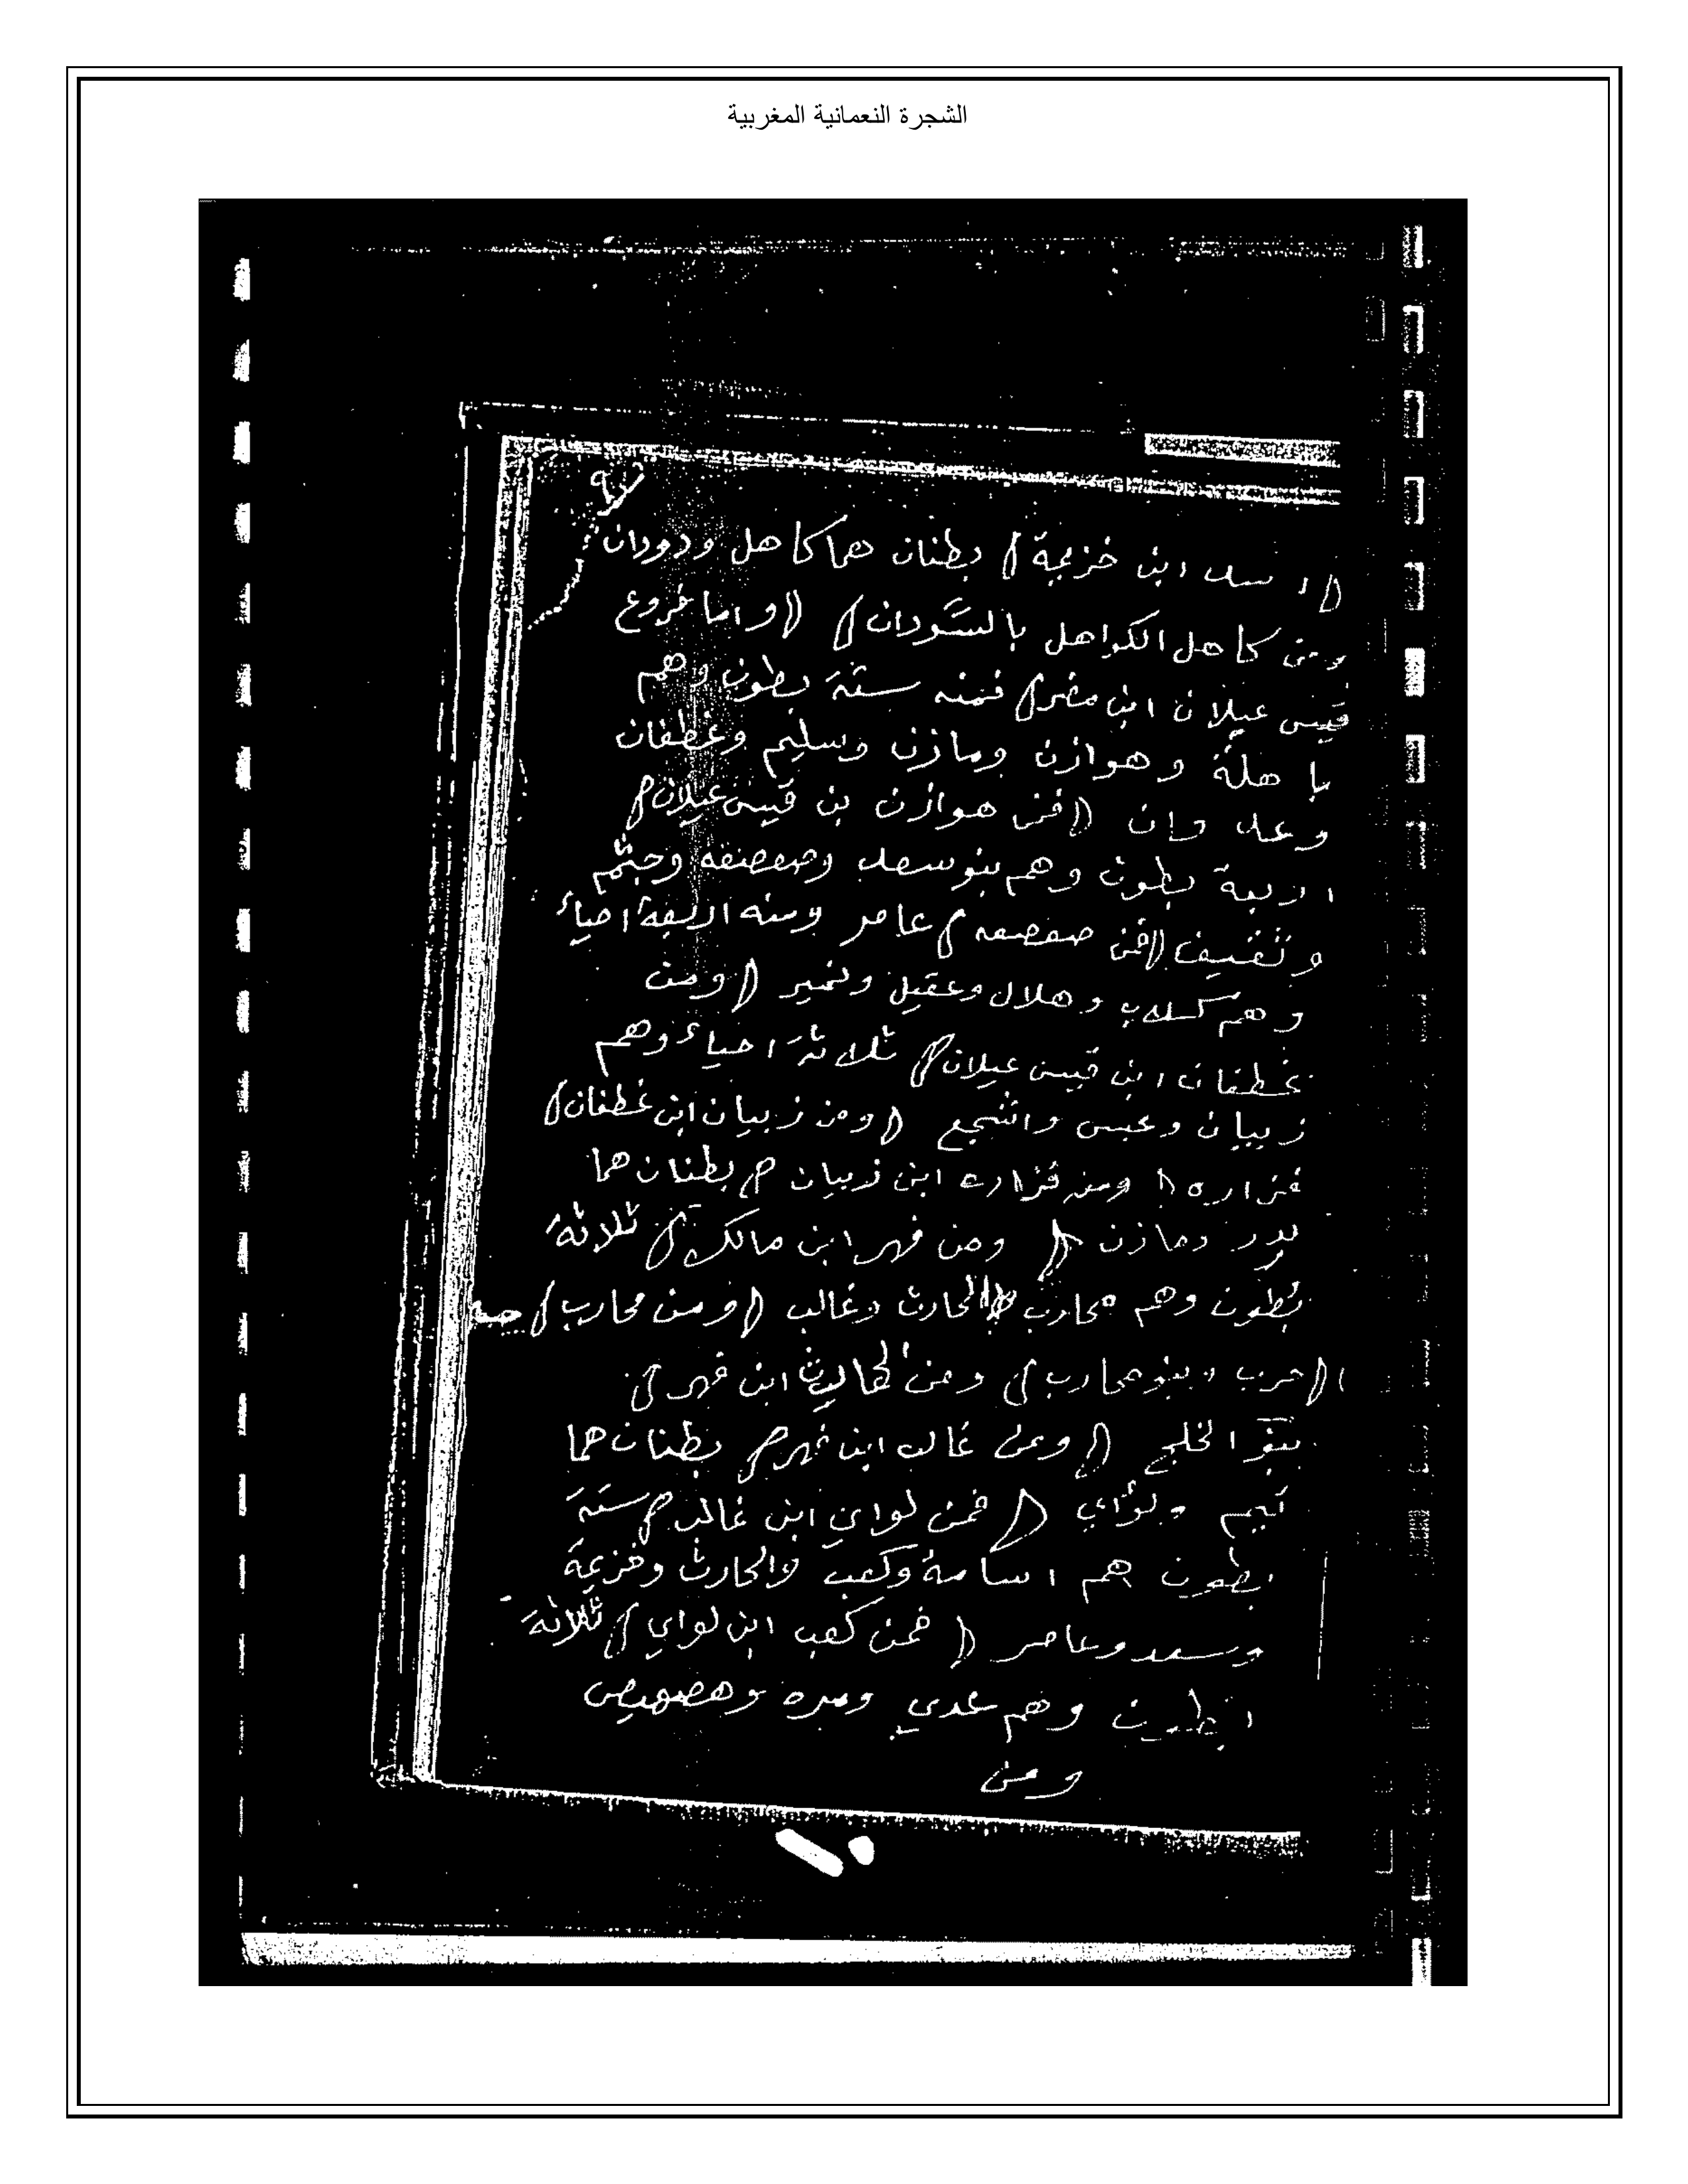 الشجرة النعمانية المغربية
( اسد ابن خزيمة ) بطنان هما كاهل ودودان
ومن كاهل الكواهل بالسَّودان ) ( واما فروع
قيس عيلان ابن مضر ) فمنه ستة بطون وهم
باهلة وهوازن ومازن وسليم وغطفان
وعدوان ( فمن هوازن بن قيس عيلان )
اربعة بطون وهم بنو سعد وصعصعه وجثم
وثقيف ( فمن صعصعه ) عامر ومنه اربعة احياء
وهم كلاب وهلال وعقيل ونمير ( ومن
غطفان ابن قيس عيلان ) ثلاثة احياء وهم
زبيان وعبس واشجع ( ومن زبيان ابن غطفان )
فزاره ( ومن فزاره ابن زبيان ) بطنان هما
بدر ومازن ( ومن فهر ابن مالك ) ثلاثة
بطون وهم محارب والحارث وغالب ( ومن محارب )
حرب وبنو محارب ) ومن الحارث ابن فهر )
بنو الخلج ( ومن غالب ابن فهر ) بطنان هما
تيم ولؤاي ( فمن لواي ابن غالب ) ستة
ابطون هم اسامة وكعب والحارث وخزيمة
وسعد وعامر ( فمن كعب ابن لواي ) ثلاثة
ابطون وهم عدي ومره وهصهيص
ومن